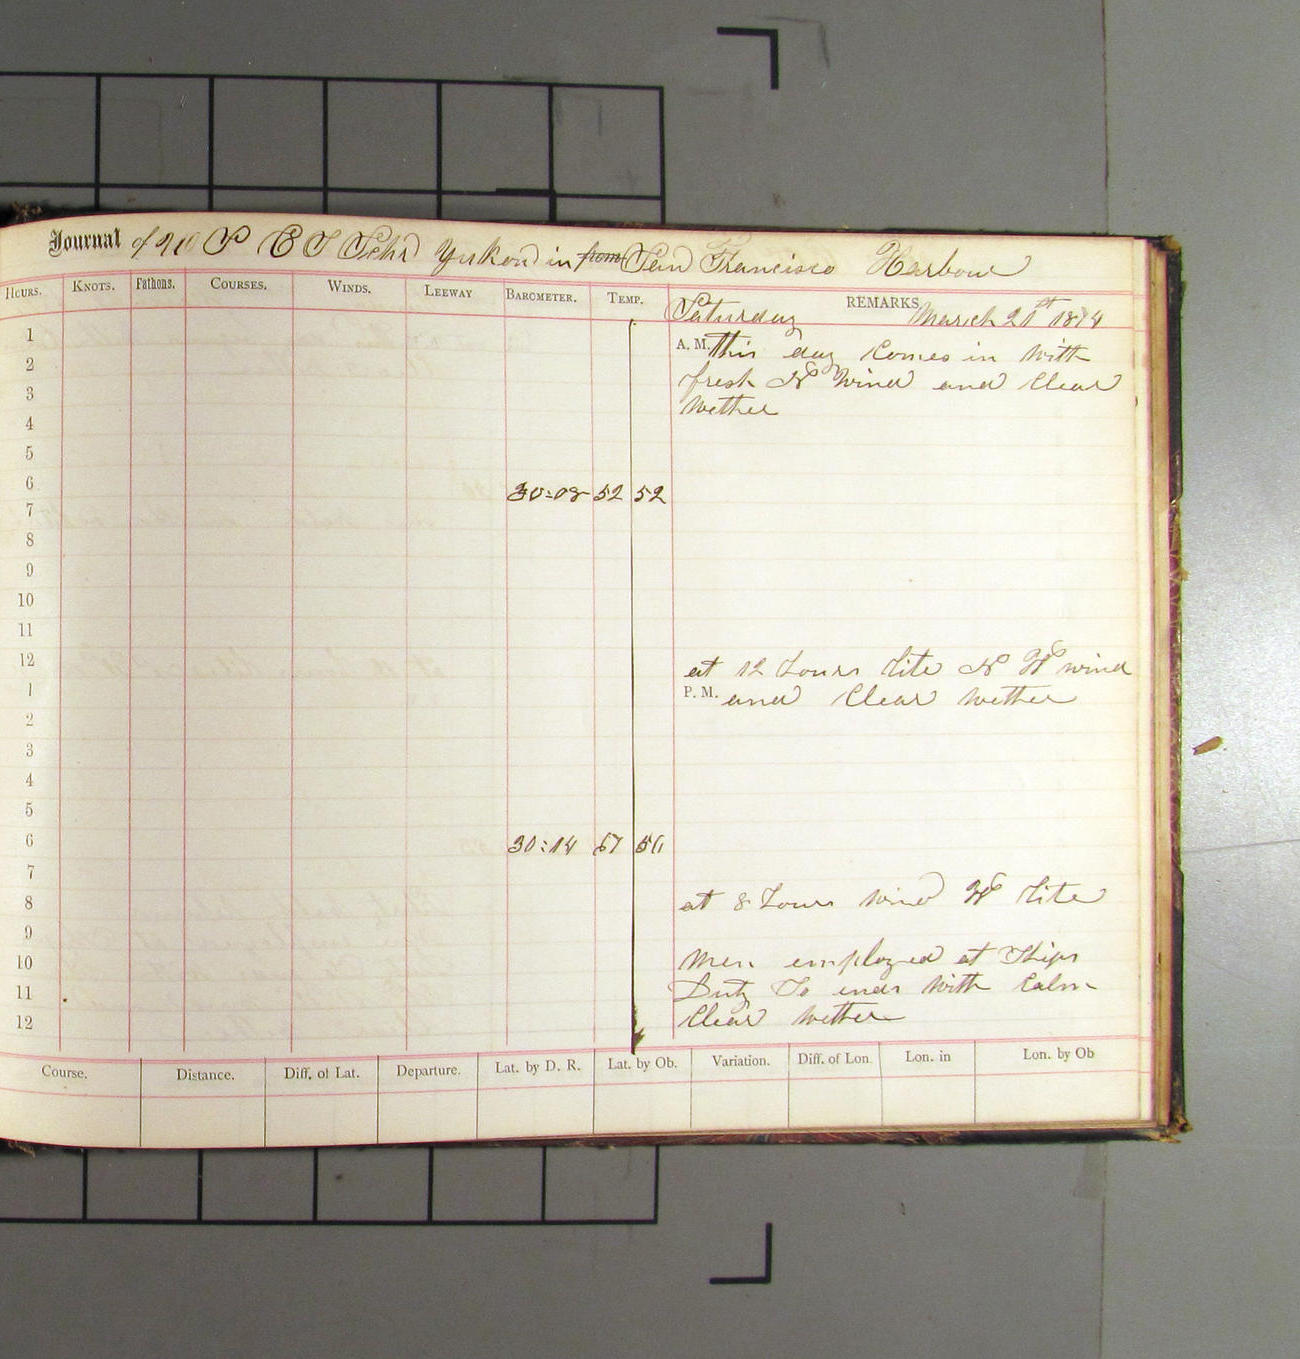 Journal of U S C S Schr Yukon in from San Francisco Harbour
HOURS. KNOTS. Fathoms. COURSES. WINDS. LEEWAY BAROMETER. TEMP. REMARKS.
Saturday March 21st 1874
1 A. M. This day Comes in with
2 fresh N Wind and Clear
3 wether
4
5
6 30:08 52 52
7
8
9
10
11
12 at 12 hours lite N W wind
1 P. M. and Clear wether
2
3
4
5
6 30:14 67 56
7
8 at 8 hours wind W lite
9
10 Men employed at Ships
11 Duty So ends with Calm
12 Clear wether
Course. Distance. Diff. of Lat. Departure. Lat. by D. R. Lat. by Ob. Variation. Diff. of Lon. Lon. in Lon. by Ob